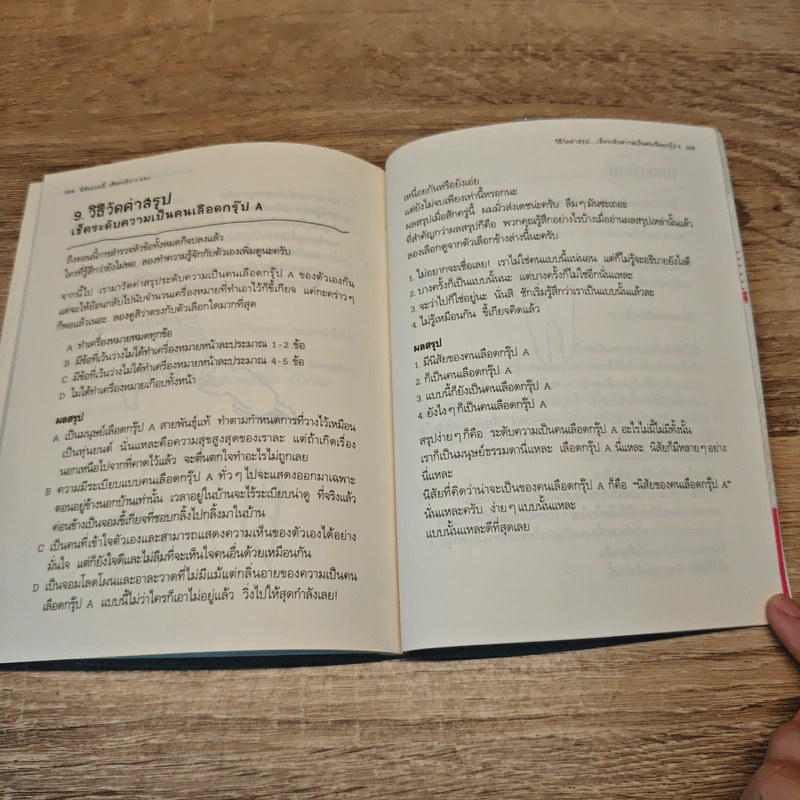 คู่มือมนุษย์ เลือดกรุ๊ป A
9. วิธีวัดค่าสรุป
เช็คระดับความเป็นคนเลือดกรุ๊ป A
ถึงตอนนี้การสำรวจหัวข้อทั้งหมดก็จบลงแล้ว
ใครที่รู้สึกว่ายังไม่พอ ลองทำความรู้จักกับตัวเองเพิ่มดูนะครับ
จากนี้ไป เรามาวัดค่าสรุประดับความเป็นคนเลือดกรุ๊ป A ของตัวเองกัน
แต่จะให้ย้อนกลับไปนับจำนวนเครื่องหมายที่ทำเอาไว้ก็ขี้เกียจ แค่กะคร่าวๆ
ก็พอแล้วเนอะ ลองดูสิว่าตรงกับตัวเลือกใดมากที่สุด
A ทำเครื่องหมายหมดทุกข้อ
B มีข้อที่เว้นว่างไม่ได้ทำเครื่องหมายหน้าละประมาณ 1-2 ข้อ
C มีข้อที่เว้นว่างไม่ได้ทำเครื่องหมายหน้าละประมาณ 4-5 ข้อ
D ไม่ได้ทำเครื่องหมายเกือบทั้งหน้า
ผลสรุป
A เป็นมนุษย์เลือดกรุ๊ป A สายพันธุ์แท้ ทำตามกำหนดการที่วางไว้เหมือน
เป็นหุ่นยนต์ นั่นแหละคือความสุขสูงสุดของเราละ แต่ถ้าเกิดเรื่อง
นอกเหนือไปจากที่คาดไว้แล้ว จะตื่นตกใจทำอะไรไม่ถูกเลย
B ความมีระเบียบแบบคนเลือดกรุ๊ป A ทั่วๆ ไปจะแสดงออกมาเฉพาะ
ตอนอยู่ข้างนอกบ้านเท่านั้น เวลาอยู่ในบ้านจะไร้ระเบียบน่าดู ที่จริงแล้ว
ค่อนข้างเป็นจอมขี้เกียจที่ชอบกลิ้งไปกลิ้งมาในบ้าน
C เป็นคนที่เข้าใจตัวเองและสามารถแสดงความเห็นของตัวเองได้อย่าง
มั่นใจ แต่ก็ยังใจดีและไม่ลืมที่จะเห็นใจคนอื่นด้วยเหมือนกัน
D เป็นจอมโลดโผนและอาละวาดที่ไม่มีแม้แต่กลิ่นอายของความเป็นคน
เลือดกรุ๊ป A แบบนี้ไม่ว่าใครก็เอาไม่อยู่แล้ว วิ่งไปให้สุดกำลังเลย!
วิธีวัดค่าสรุป...เช็คระดับความเป็นคนเลือดกรุ๊ป A
เหนื่อยกันหรือยังเอ่ย
แต่ยังไม่จบเพียงเท่านี้หรอกนะ
ผลสรุปเมื่อสักครู่นี้ ผมมั่วส่งเดชน่ะครับ ลืมๆ มันซะเถอะ
ที่สำคัญกว่าผลสรุปก็คือ พวกคุณรู้สึกอย่างไรบ้างเมื่ออ่านผลสรุปเหล่านั้นแล้ว
ลองเลือกดูจากตัวเลือกข้างล่างนี้นะครับ
1. ไม่อยากจะเชื่อเลย! เราไม่ใช่คนแบบนี้แน่นอน แต่ก็ไม่รู้จะอธิบายยังไงดี
2. บางครั้งก็เป็นแบบนั้นนะ แต่บางครั้งก็ไม่ใช่อีกนั่นแหละ
3. จะว่าไปก็ใช่อยู่นะ นั่นสิ ชักเริ่มรู้สึกว่าเราเป็นแบบนั้นแล้วละ
4. ไม่รู้เหมือนกัน ขี้เกียจคิดแล้ว
ผลสรุป
1. มีนิสัยของคนเลือดกรุ๊ป A
2. ก็เป็นคนเลือดกรุ๊ป A
3. แบบนี้ก็ยังเป็นคนเลือดกรุ๊ป A
4. ยังไงๆ ก็เป็นคนเลือดกรุ๊ป A
สรุปง่ายๆ ก็คือ ระดับความเป็นคนเลือดกรุ๊ป A อะไรไม่มี้ไม่มีทั้งนั้น
เราก็เป็นมนุษย์ธรรมดานี่แหละ เลือดกรุ๊ป A นี่แหละ นิสัยก็มีหลายๆ อย่าง
นี่แหละ
นิสัยที่คิดว่าน่าจะเป็นของคนเลือดกรุ๊ป A ก็คือ "นิสัยของคนเลือดกรุ๊ป A"
นั่นแหละครับ ง่ายๆ แบบนั้นแหละ
แบบนั้นแหละดีที่สุดเลย